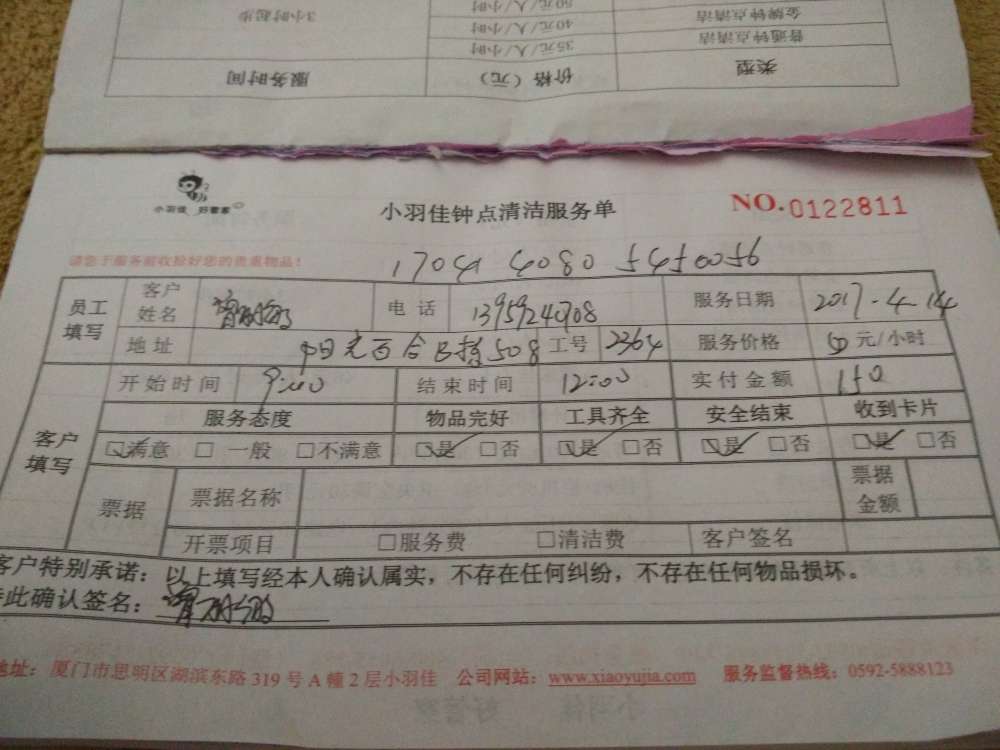 50元/人/小时
3小时起步
金牌钟点清洁
40元/人/小时
普通钟点清洁
35元/人/小时
类型
价格（元）
服务时间
小羽佳 好管家
小羽佳钟点清洁服务单
NO.0122811
请您于服务前收拾好您的贵重物品！
员工填写
客户姓名
电话
13959240908
服务日期
2017-4-14
地址
百合B栋508
工号
2364
服务价格
50元/小时
客户填写
开始时间
9:00
结束时间
12:00
实付金额
150
服务态度
物品完好
工具齐全
安全结束
收到卡片
满意 一般 不满意
是 否
是 否
是 否
是 否
票据
票据名称
票据金额
开票项目
服务费
清洁费
客户签名
客户特别承诺：以上填写经本人确认属实，不存在任何纠纷，不存在任何物品损坏。
此确认签名：
地址：厦门市思明区湖滨东路319号A幢2层小羽佳 公司网站：www.xiaoyujia.com 服务监督热线：0592-5888123